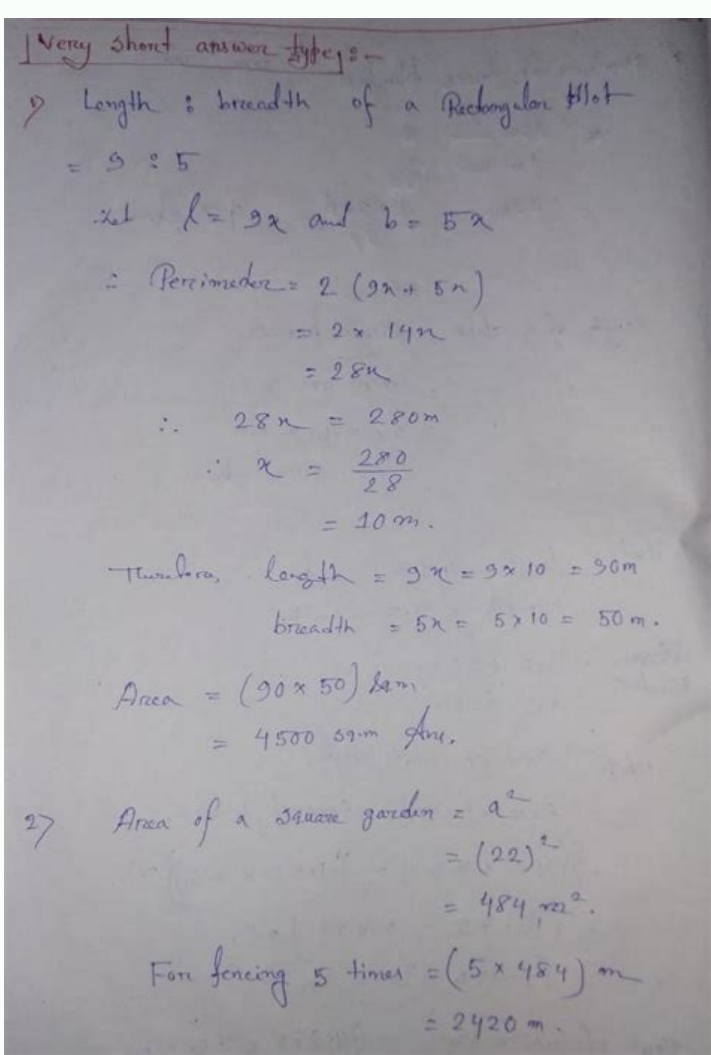 Very short answer type:-
1) Length : breadth of a Rectangular Plot
= 9 : 5
Let l = 9x and b = 5x
∴ Perimeter = 2 (9x + 5x)
= 2 × 14x
= 28x
∴ 28x = 280m
∴ x = 280/28
= 10 m.
Therefore, length = 9x = 9×10 = 90m
breadth = 5x = 5×10 = 50 m.
Area = (90 × 50) sqm
= 4500 sq.m Ans.
2) Area of a square garden = a²
= (22)²
= 484 m².
For fencing 5 times = (5 × 484) m
= 2420 m.